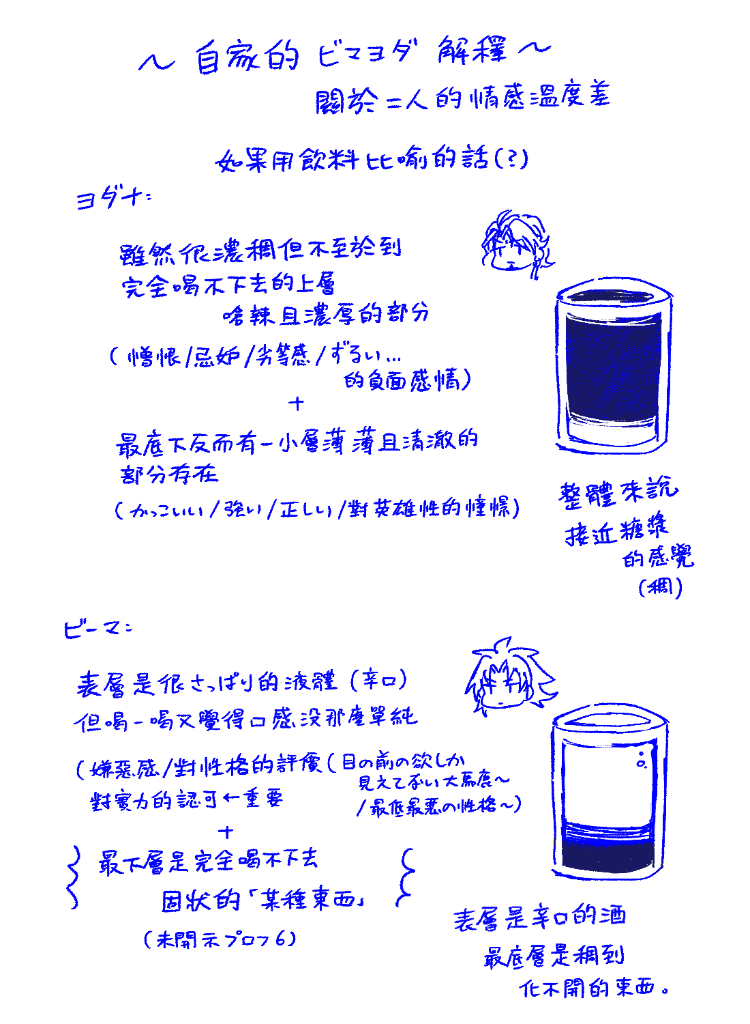 ～ 自家的 ビマヨダ 解釋 ～
關於二人的情感溫度差
如果用飲料比喻的話(?)
ヨダナ:
雖然很濃稠但不至於到
完全喝不下去的上層
嗆辣且濃厚的部分
(憎恨/忌妒/劣等感/ずるい...
的負面感情)
+
最底下反而有一小層薄薄且清澈的
部分存在
(かっこいい/強い/正しい/對英雄性的憧憬)
整體來說
接近糖漿
的感覺
(稠)
ビーマ:
表層是很さっぱり的液體(辛口)
但喝一喝又覺得口感沒那麼單純
(嫌惡感/對性格的評價(目の前の欲しか
見えてない大馬鹿～
/最低最悪の性格～)
對實力的認可←重要
+
最下層是完全喝不下去
固狀的「某種東西」
(未開示プロフ6)
表層是辛口的酒
最底層是稠到
化不開的東西。